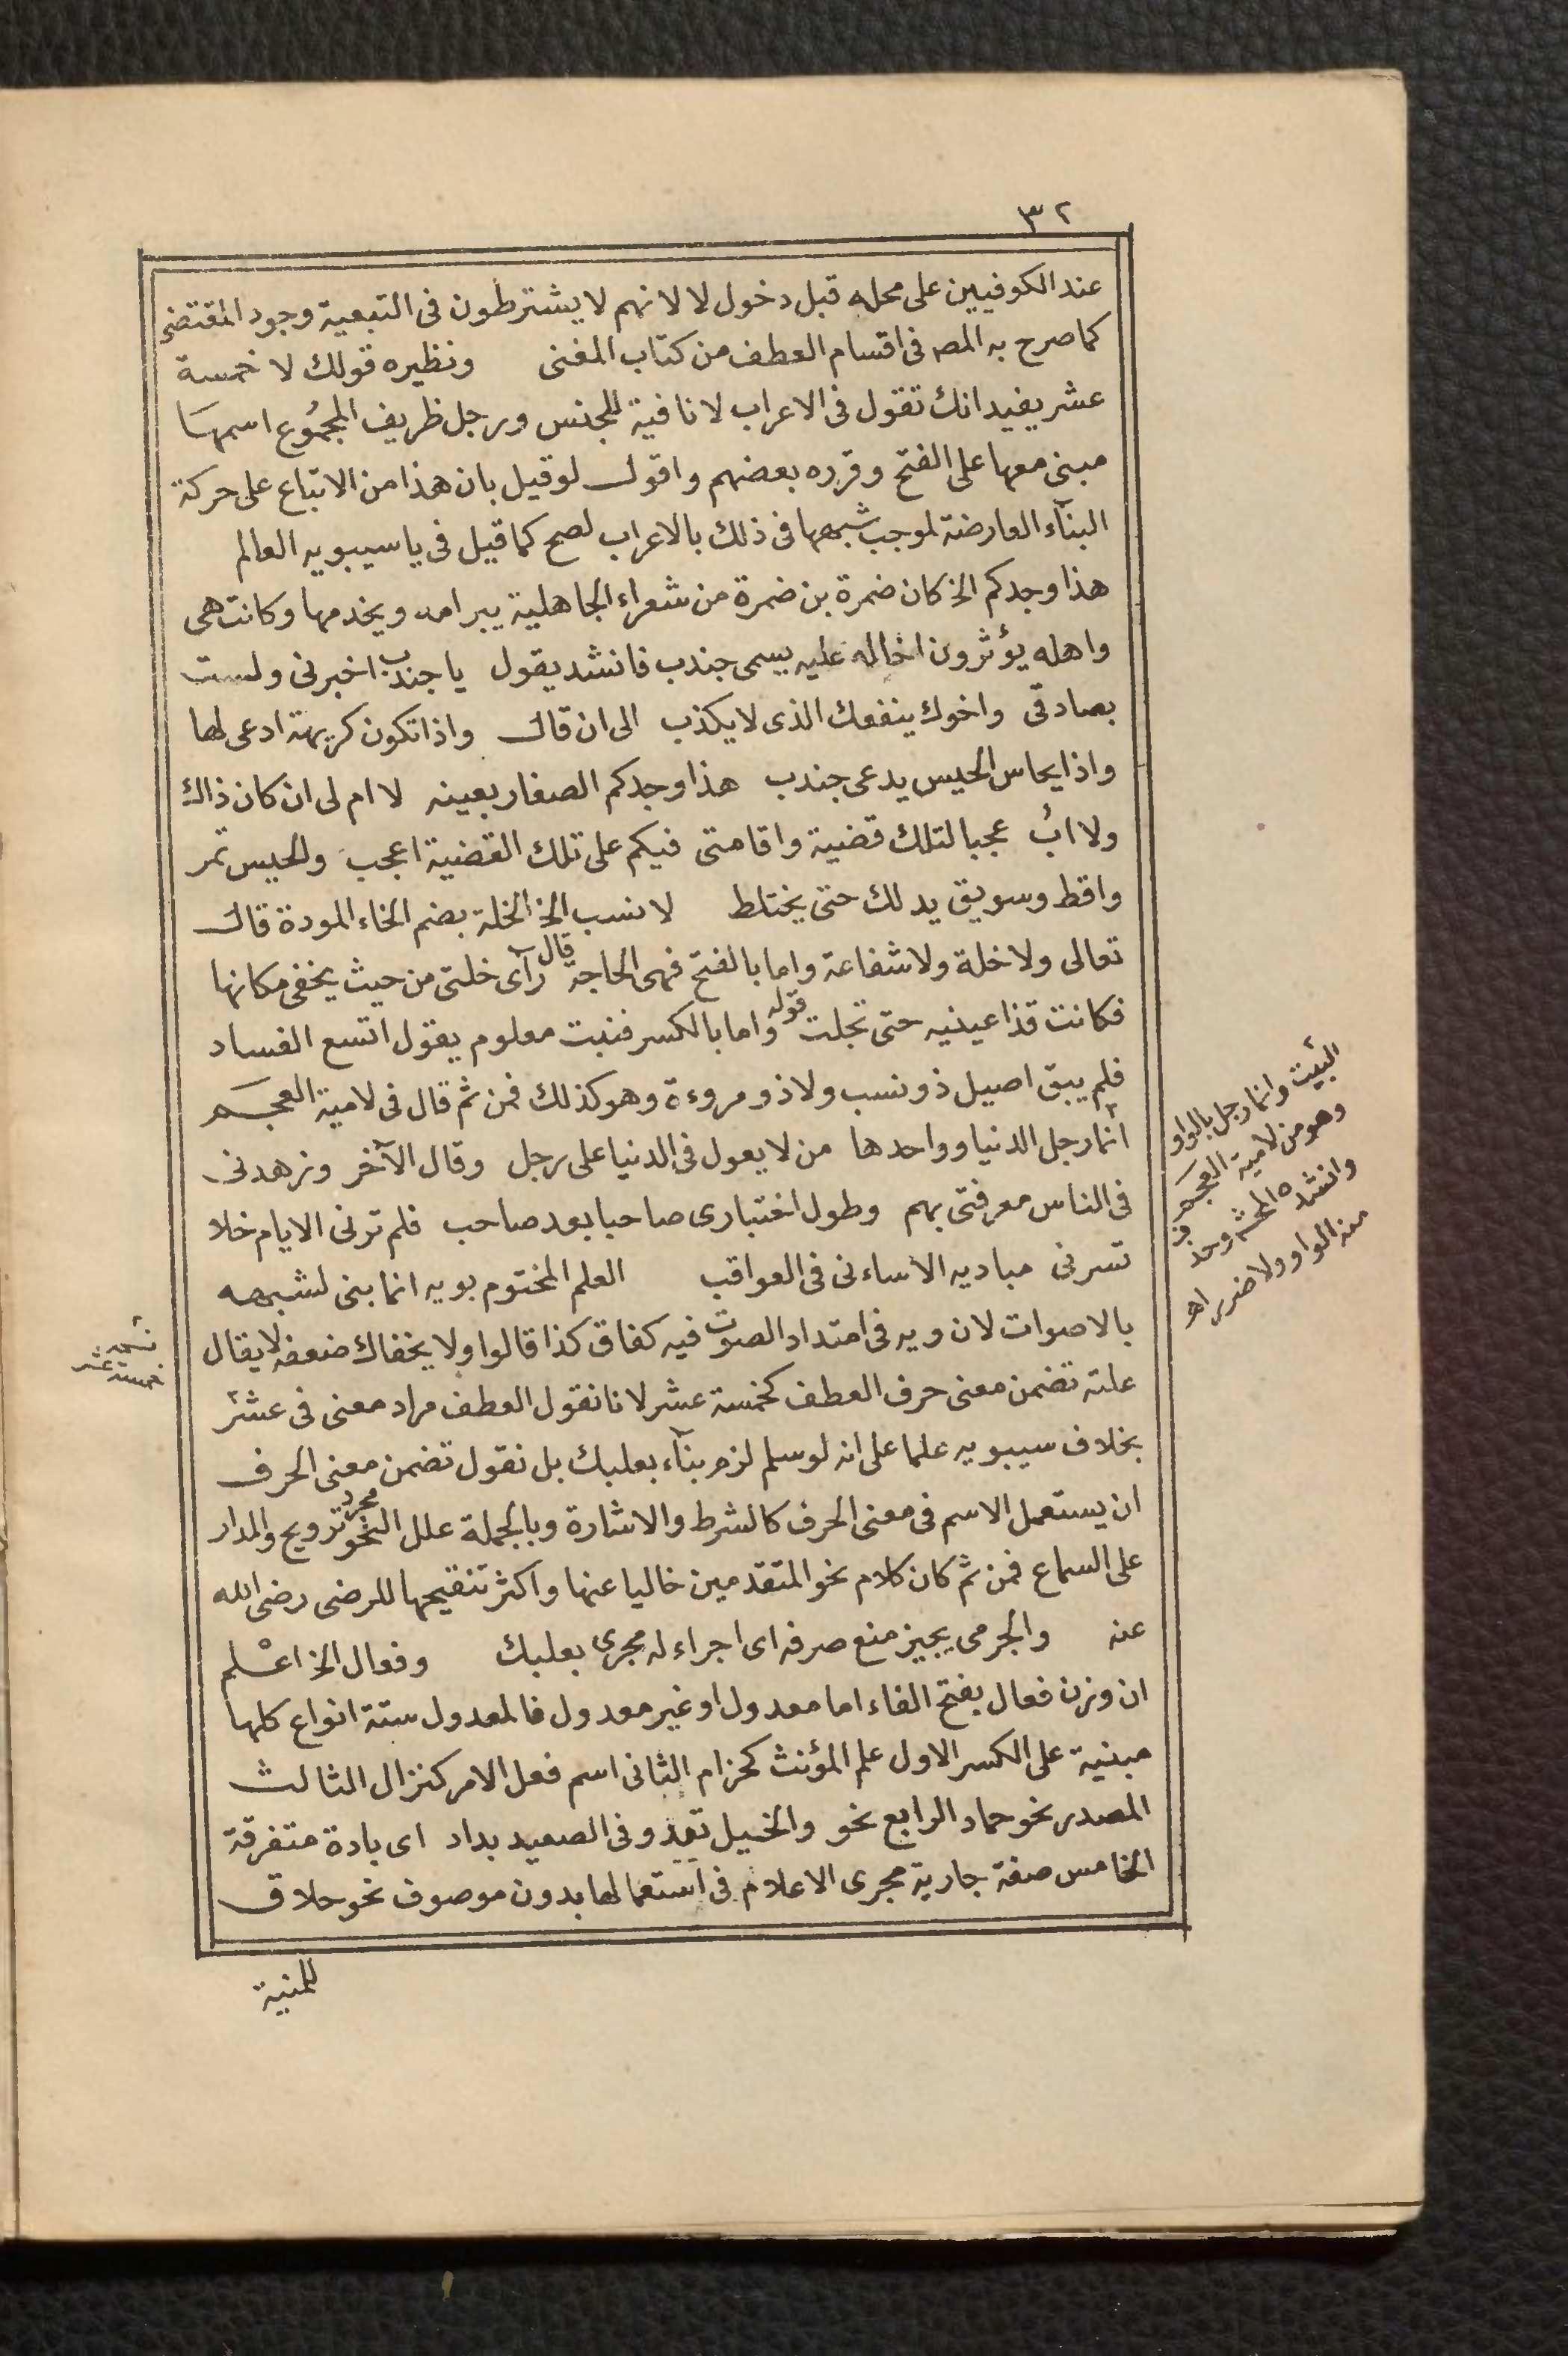 ٣٢
عند الكوفيين على محله قبل دخول لا لانهم لا يشترطون فى التبعية وجود المقتضى
كما صرح به المصـ فى اقسام العطف من كتاب المغنى ونظيره قولك لا خمسة
عشر يفيد انك تقول فى الاعراب لا نافية للجنس ورجل ظريف المجموع اسمها
مبنى معها على الفتح وقرره بعضهم واقول لو قيل بان هذا من الاتباع على حركة
البنآء العارضة لموجب شبهها فى ذلك بالاعراب لصح كما قيل فى يا سيبويه العالم
هذا وجدكم الخ كان ضمرة بن ضمرة من شعراء الجاهلية يبر امه ويخدمها وكانت هى
واهله يؤثرون اخا له عليه يسمى جندب فانشد يقول يا جندب اخبرنى ولست
بصادقى واخوك ينفعك الذى لا يكذب الى ان قال واذا تكون كريهة ادعى لها
واذا يحاس الحيس يدعى جندب هذا وجدكم الصغار بعينه لا ام لى ان كان ذاك
ولا ابُ عجبا لتلك قضية واقامتى فيكم على تلك القضية اعجب والحيس تمر
واقط وسويق يدلك حتى يختلط لا نسب الخ الخلة بضم الخاء المودة قال
تعالى ولا خلة ولا شفاعة واما بالفتح فهى الحاجة قال رآى خلتى من حيث يخفى مكانها
فكانت قذا عينيه حتى تجلت قوله واما بالكسر فنبت معلوم يقول اتسع الفساد
فلم يبق اصيل ذو نسب ولا ذو مروءة وهو كذلك فمن ثم قال فى لامية العجم
انما رجل الدنيا وواحدها من لا يعول فى الدنيا على رجل وقال الآخر وزهدنى
فى الناس معرفتى بهم وطول اختبارى صاحبا بعد صاحب فلم ترنى الايام خلا
تسرنى مباديه الا ساءنى فى العواقب العلم المختوم بويه انما بنى لشبهه
بالاصوات لان ويه فى امتداد الصوت فيه كغاق كذا قالوا ولا يخفاك ضعفه لا يقال
علته تضمن معنى حرف العطف كخمسة عشر لانا نقول العطف مراد معنى فى عشر
بخلاف سيبويه علما على انه لو سلم لزم بنآء بعلبك بل نقول تضمن معنى الحرف
ان يستعمل الاسم فى معنى الحرف كالشرط والاشارة وبالجملة علل النحو مجرد ترويج والمدار
على السماع فمن ثم كان كلام نحو المتقدمين خاليا عنها واكثر تنقيحها للرضى رضى الله
عنه والجرمى يجيز منع صرفه اى اجراء له مجرى بعلبك وفعال الخ اعلم
ان وزن فعال بفتح الفاء اما معدول او غير معدول فالمعدول ستة انواع كلها
مبنية على الكسر الاول علم المؤنث كحزام الثانى اسم فعل الامر كنزال الثالث
المصدر نحو حماد الرابع نحو والخيل تعدو فى الصعيد بداد اى بادة متفرقة
الخامس صفة جارية مجرى الاعلام فى استعمالها بدون موصوف نحو حلاق
للمنية
البيت وانما رجل بالواو
وهو من لامية العجم
وانشده المحشـ وحذف
منه الواو ولا ضرر اهـ
خمسة عشر